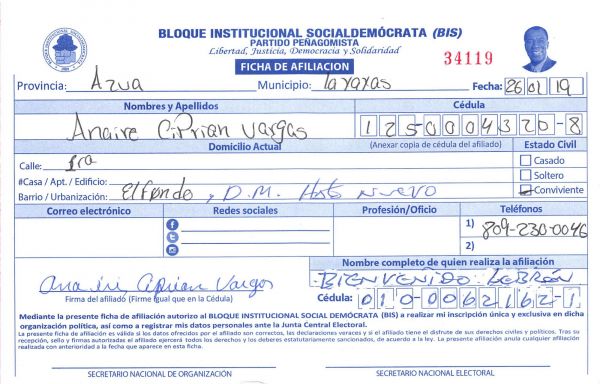 BLOQUE INSTITUCIONAL SOCIALDEMÓCRATA (BIS)
PARTIDO PEÑAGOMISTA
Libertad, Justicia, Democracia y Solidaridad
FICHA DE AFILIACION
34119
Provincia: Azua Municipio: Fecha: 26 01 19
Nombres y Apellidos Cédula
Anaire Ciprian Vargas 1250004320-8
Domicilio Actual (Anexar copia de cédula del afiliado) Estado Civil
Calle: 1ra Casado
#Casa / Apt. / Edificio: Soltero
Barrio / Urbanización: El fondo, D.M. Hato NUEVO Conviviente
Correo electrónico Redes sociales Profesión/Oficio Teléfonos
1) 809-230-0046
2)
Nombre completo de quien realiza la afiliación
Anaire Ciprian Vargas BIENVENIDO LEBRÓN
Firma del afiliado (Firme Igual que en la Cédula) Cédula: 010-0062162-1
Mediante la presente ficha de afiliación autorizo al BLOQUE INSTITUCIONAL SOCIAL DEMÓCRATA (BIS) a realizar mi inscripción única y exclusiva en dicha
organización política, así como a registrar mis datos personales ante la Junta Central Electoral.
La presente ficha de afiliación es válida si los datos ofrecidos por el afiliado son correctos, las declaraciones veraces y si el afiliado tiene el disfrute de sus derechos civiles y políticos. Tras su
recepción, sello y firmas autorizadas el afiliado ejercerá todos los derechos y los deberes estatutariamente sancionados, de acuerdo a la ley. La presente afiliación anula cualquier afiliación
realizada con anterioridad a la fecha que aparece en esta ficha.
SECRETARIO NACIONAL DE ORGANIZACIÓN SECRETARIO NACIONAL ELECTORAL